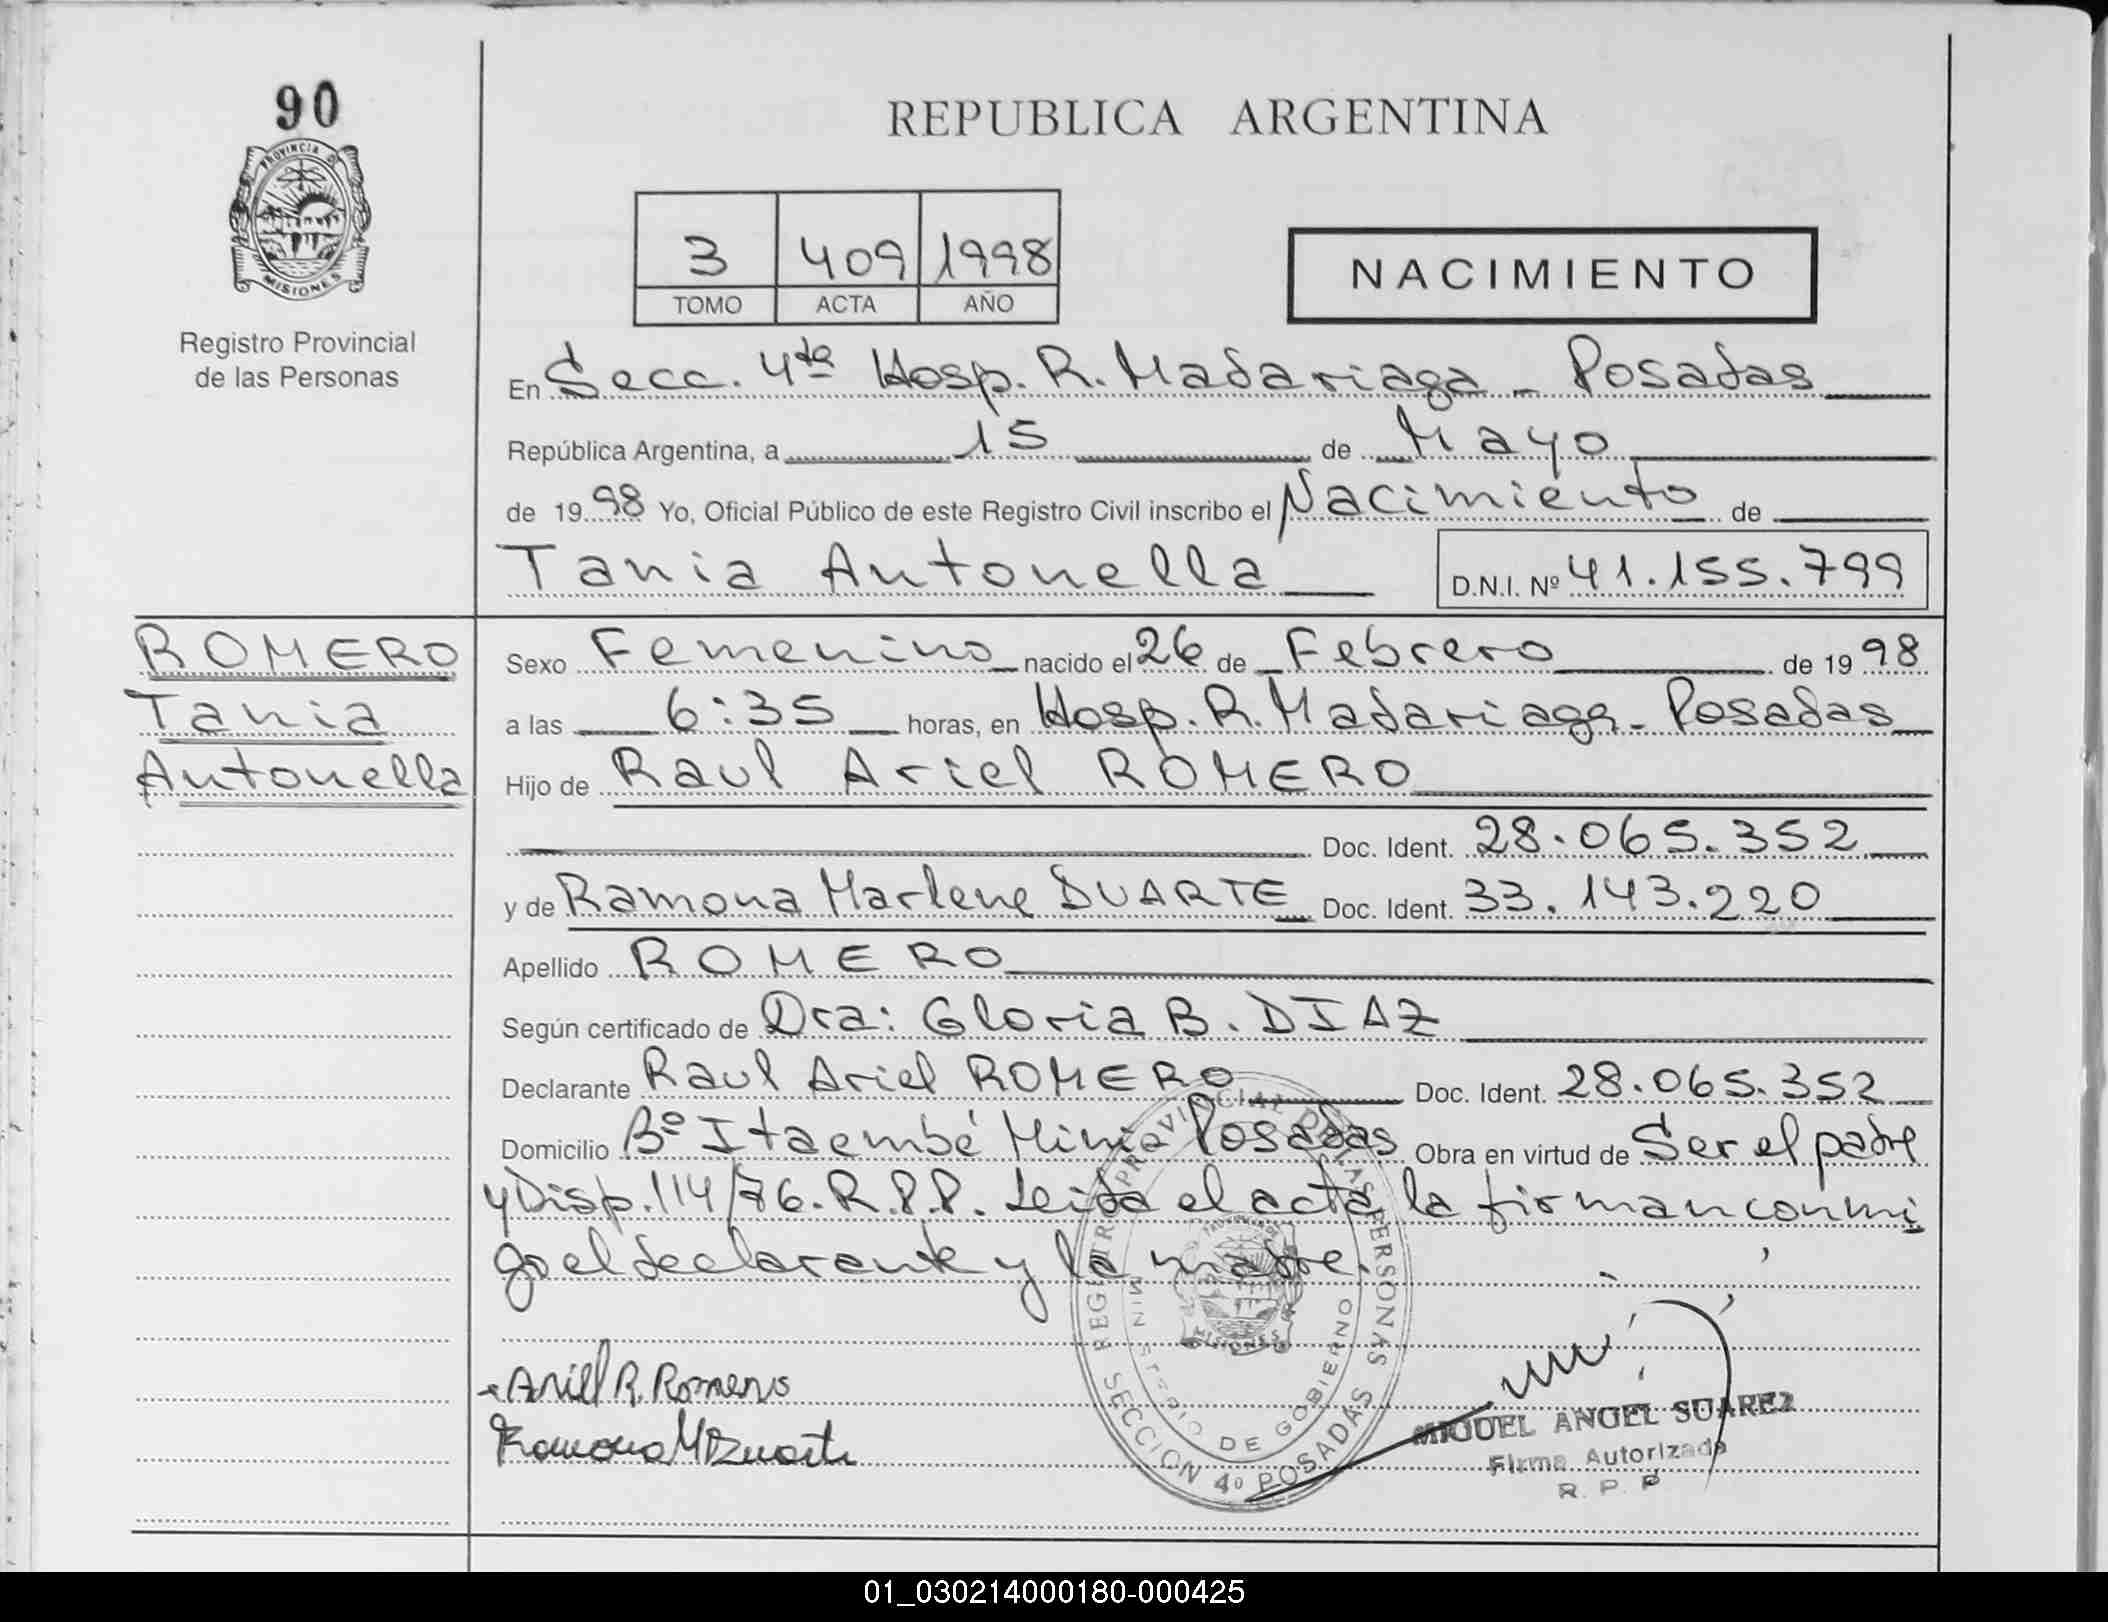 90
PROVINCIA D
MISIONES
Registro Provincial
de las Personas
REPUBLICA ARGENTINA
3 409 1998
TOMO ACTA AÑO
NACIMIENTO
En Secc. 4ta Hosp. R. Madariaga - Posadas
República Argentina, a 15 de Mayo
de 19 98 Yo, Oficial Público de este Registro Civil inscribo el Nacimiento de
Tania Antonella D.N.I. Nº 41.155.799
ROMERO
Tania
Antonella
Sexo Femenino nacido el 26 de Febrero de 19 98
a las 6:35 horas, en Hosp. R. Madariaga - Posadas
Hijo de Raul Ariel ROMERO
Doc. Ident. 28.065.352
y de Ramona Marlene DUARTE Doc. Ident. 33.143.220
Apellido ROMERO
Según certificado de Dra: Gloria B. DIAZ
Declarante Raul Ariel ROMERO Doc. Ident. 28.065.352
Domicilio Bº Itaembé Miní Posadas Obra en virtud de Ser el padre
y Disp. 114/76. R.P.P. Leida el acta la firman conmi
go el declarante y la madre.
REGISTRO PROVINCIAL DE LAS PERSONAS
MINISTERIO DE GOBIERNO
MISIONES
SECCION 4º POSADAS
Ariel R. Romero
Ramona M Duarte
MIGUEL ANGEL SUAREZ
Firma Autorizada
R. P. P
01_030214000180-000425